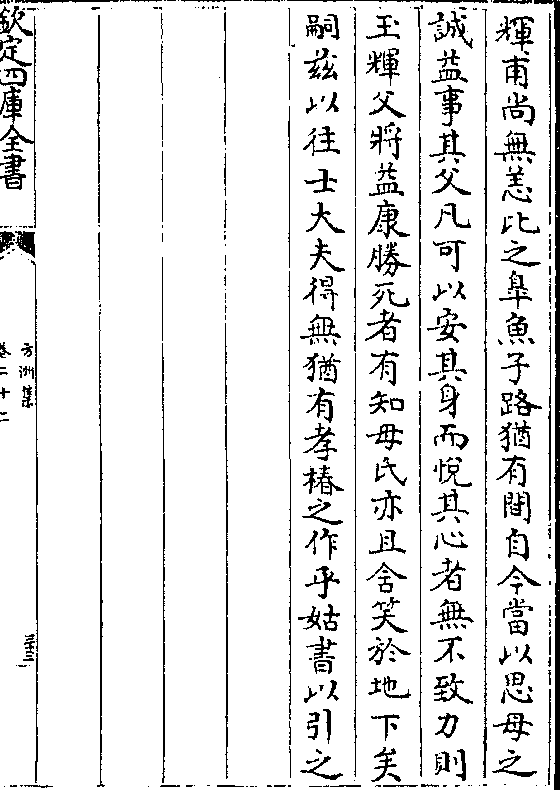 輝甫尚無恙比之臯魚子路猶有閒自今當以思母之
誠益事其父凡可以安其身而悅其心者無不致力則
玉輝父將益康勝死者有知母氏亦且含笑於地下矣
嗣茲以往士大夫得無猶有孝椿之作乎姑書以引之
欽定四庫全書
方洲集
卷二十二
三十三